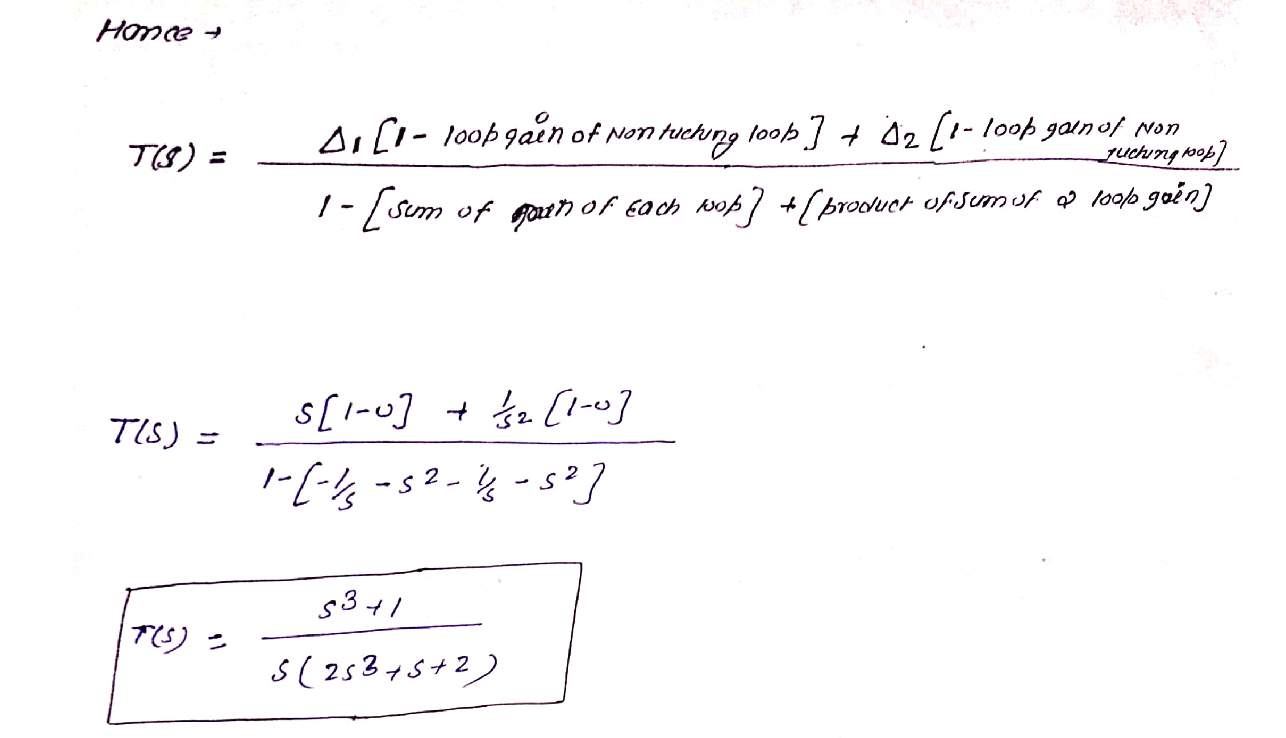 Hence →
T(S) = Δ1 [1 - loop gain of Non tuching loop] + Δ2 [1 - loop gain of Non tuching loop]
1 - [sum of gain of Each loop] + [product of sum of 2 loop gain]
T(S) = S[1-0] + 1/S2 [1-0]
1-[-1/S - S2 - 1/S - S2]
T(S) = S3+1
S(2S3+S+2)